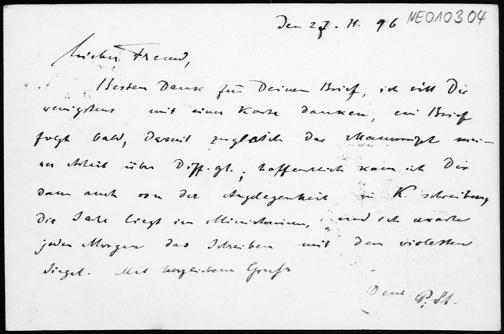 Den 27. II. 96 NE010304
Lieber Freund,
Besten Dank für Deinen Brief, ich will Dir
wenigstens mit einer Karte danken, ein Brief
folgt bald, damit zugleich das Manuscript mei-
ner Arbeit über Diff.gl.; hoffentlich kann ich Dir
dann auch von der Angelegenheit in K. schreiben,
die Sache liegt im Ministerium, und ich erwarte
jeden Morgen das Schreiben mit dem violetten
Siegel. Mit herzlichem Gruß
Dein P. St.